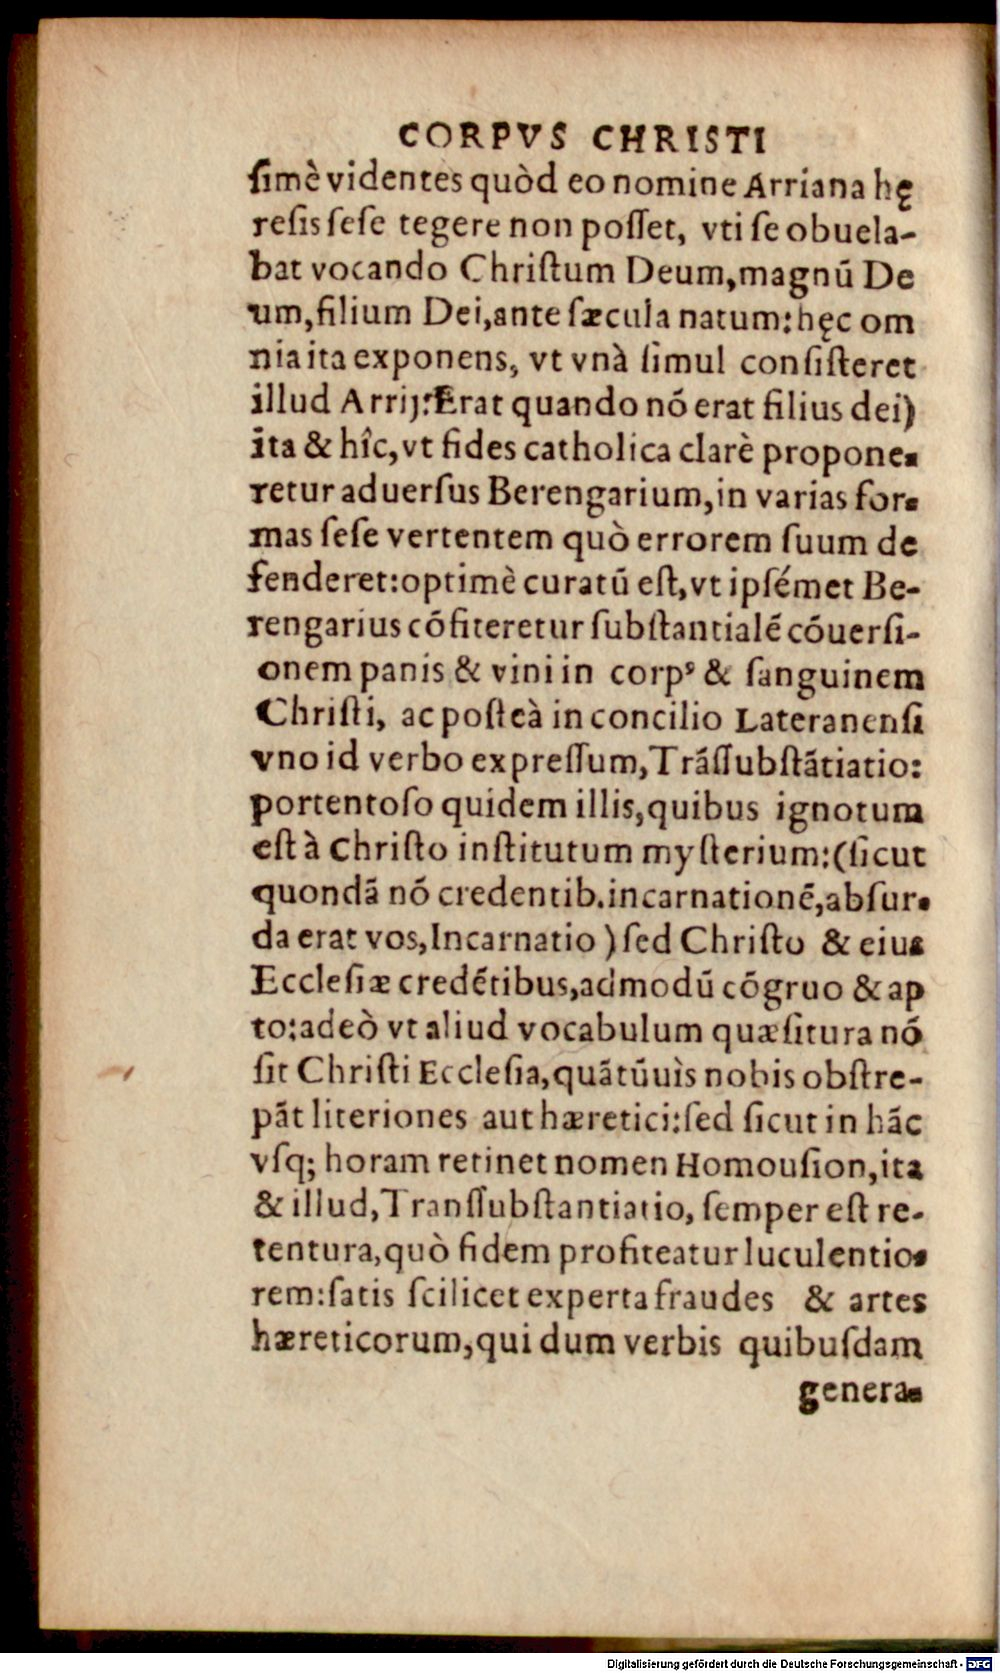 CORPVS CHRISTI
ſimè videntes quòd eo nomine Arriana hę
reſis ſeſe tegere non poſſet, vti ſe obuela-
bat vocando Chriſtum Deum, magnū De
um, filium Dei, ante ſæcula natum: hęc om
nia ita exponens, vt vnà ſimul conſiſteret
illud Arrij: Erat quando nō erat filius dei)
ita & hîc, vt fides catholica clarè propone-
retur aduerſus Berengarium, in varias for-
mas ſeſe vertentem quò errorem ſuum de
fenderet: optimè curatū eſt, vt ipſémet Be-
rengarius cōfiteretur ſubſtantialē cōuerſi-
onem panis & vini in corpꝰ & ſanguinem
Chriſti, ac poſteà in concilio Lateranenſi
vno id verbo expreſſum, Trāſſubſtātiatio:
portentoſo quidem illis, quibus ignotum
eſt à Chriſto inſtitutum myſterium: (ſicut
quondā nō credentib. incarnationē, abſur-
da erat vos, Incarnatio) ſed Chriſto & eius
Eccleſiæ credētibus, admodū cōgruo & ap
to: adeò vt aliud vocabulum quæſitura nō
ſit Chriſti Eccleſia, quātūuìs nobis obſtre-
pāt literiones aut hæretici: ſed ſicut in hāc
vſq; horam retinet nomen Homouſion, ita
& illud, Tranſſubſtantiatio, ſemper eſt re-
tentura, quò fidem profiteatur luculentio-
rem: ſatis ſcilicet experta fraudes & artes
hæreticorum, qui dum verbis quibuſdam
genera-
Digitalisierung gefördert durch die Deutsche Forschungsgemeinschaft - DFG